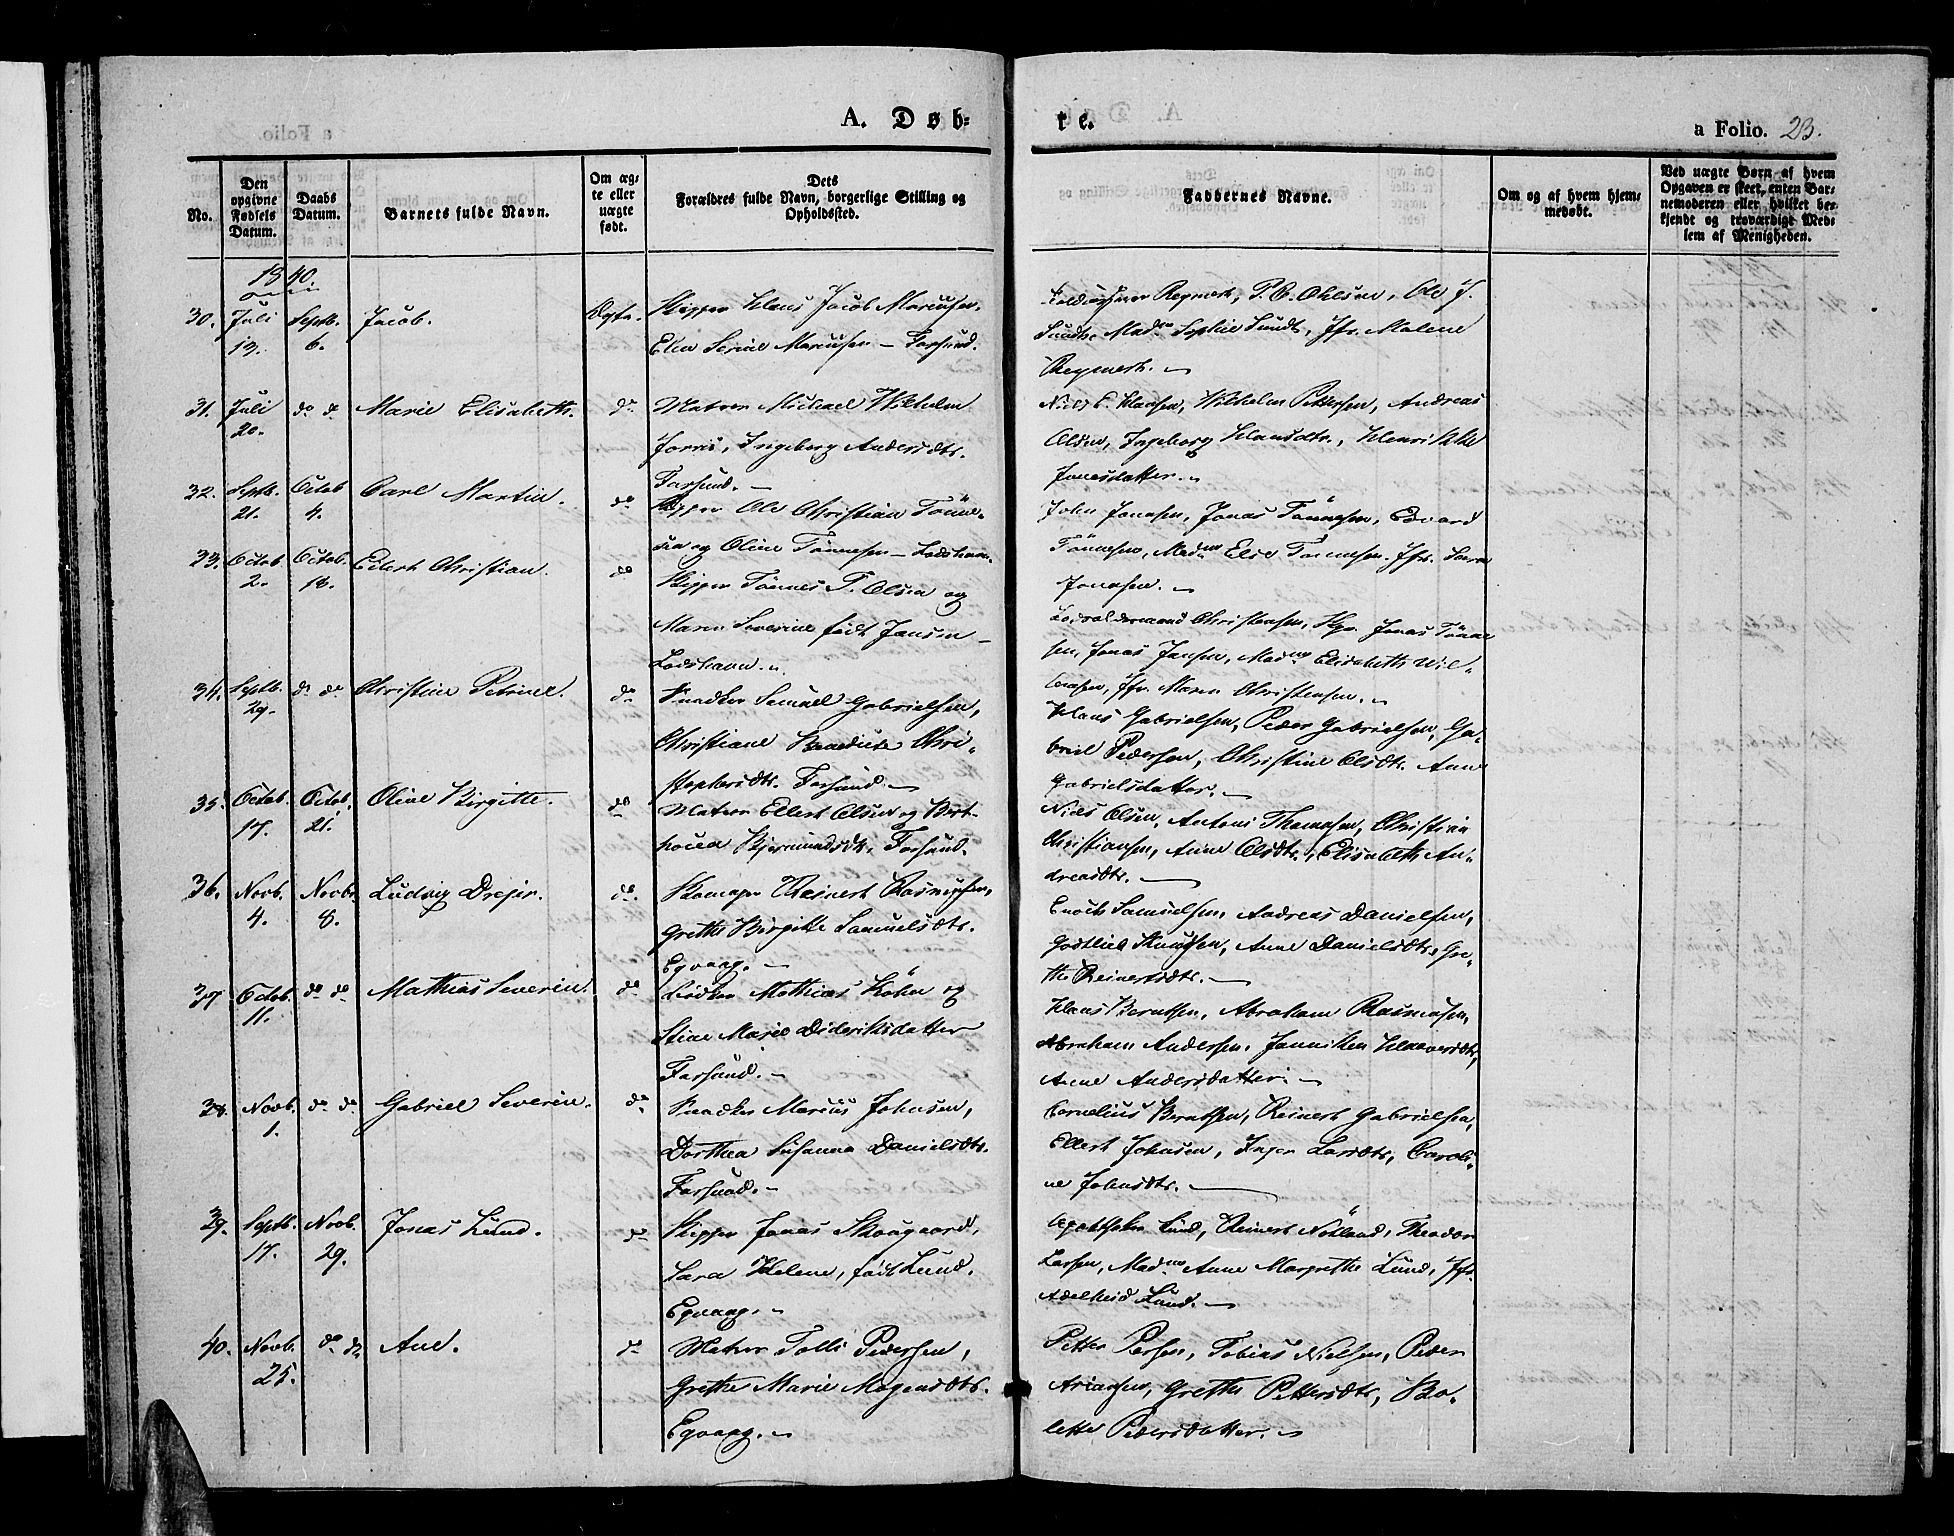 A. Døb-
te.
a Folio. 23.
No.
Den opgivne Fødsels Datum.
Daabs Datum.
Barnets fulde Navn.
Om ægte eller uægte født.
Dets Forældres fulde Navn, borgerlige Stilling og Opholdssted.
Faddernes Navne.
Om og af hvem hjemmedøbt.
Ved uægte Børn af hvem Opgaven er skeet, enten Barnemoderen eller hvilket bekjendt og troværdigt Medlem af Menigheden.
1840.
30. Juli 19. Septb. 6. Jacob. Ægte.
Skipper Klaus Jacob Mariusen.
Elen Serine Mariusen – Farsund.
Reymert, P. C. Ohlsen, Ole J.
Sundt, Madme Sophie Sundt, Jfr. Malene
Reymert. –
31. Juli 20. do do Marie Elisabeth. do
Matros Michael Wilhelm
Ingeborg Andersdtr.
Farsund. –
Niels C. Klausen, Wilhelm Pettersen, Andreas
Olsen, Ingeborg Klausdtr., Henrikke
Jonasdatter. –
32. Septb. 21. Octob 4. Carl Martin. do
Skipper Ole Christian Tönne-
sen og Oline Tönnesen – Lodshavn.
John Jonasen, Jonas Tönnesen, Edvard
Tönnesen, Madme Else Tönnesen, Jfr. Sara
Jonasen. –
33. Octob. 2. Octob. 18. Eilert Christian. do
Skipper Tönnes P. Olsen og
Maren Severine født Jansen –
Lodshavn. –
Lodsoldermand Christensen, Jonas Tönne
sen, Jonas Jansen, Madme Elisabeth Wil-
lumsen, Jfr. Maren Christensen. –
34. Septb. 29. do do Christine Petrine. do
Snedker Samuel Gabrielsen,
Christiane Benedicte Chri-
stophersdtr. Farsund. –
Klaus Gabrielsen, Peder Gabrielsen, Ga-
briel Pedersen, Christine Olsdtr. Anne
Gabrielsdatter. –
35. Octob. 17. Octob. 21. Oline Birgitte. do
Matros Ellert Olsen og Bert-
Gjermundsdtr. Farsund.
Niels Olsen, Antoni Thomasen, Christian
Christiansen, Anne Olsdtr., Elisabeth An-
dreasdtr. –
36. Novb. 4. Novbr. 8. Ludvig Drejer. do.
Skomager Reinert Rasmussen,
Grethe Birgitte Samuelsdtr.
Eqvaag. –
Enoch Samuelsen, Andreas Danielsen,
Gottlieb Knudsen, Anne Danielsdtr., Gre-
the Reinertsdtr. –
37. Octob. 11. do do Mathias Severin. do
Bödker Mathias Köhn og
Stine Marie Dideriksdatter
Farsund. –
Klaus Berntsen, Abraham Rasmussen,
Abraham Andersen, Janniken Klaversdtr.,
Anne Andersdatter. –
38. Novb. 1. do do Gabriel Severin. do
Snedker Marius Johnsen,
Dorthea Susanna Danielsdtr.
Farsund. –
Cornelius Berntsen, Reinert Gabrielsen,
Ellert Johnsen, Inger Larsdtr., Caroli-
ne Johnsdtr. –
39. Septb. 17. Novb. 29. Jonas Lund. do
Skipper Jonas Skougaard,
Sara Helene, født Lund,
Eqvaag. –
Apotheker Lund, Reinert Nötland, Theodor
Larsen, Madme Anne Margrethe Lund, Jfr.
Adelheid Lund. –
40. Novb. 25. do do Ane. do
Matros Tolli Pedersen,
Grethe Marie Mogensdtr.
Eqvaag. –
Petter Persen, Tobias Nielsen, Peder
Ariansen, Grethe Pettersdtr., Bo-
lette Pedersdatter. –